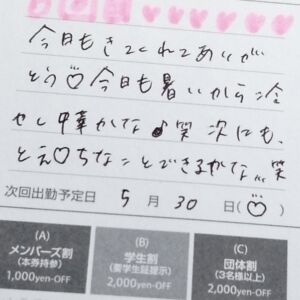 今日もきてくれてありが
とう♡今日も暑いから冷
やし中華かな♪笑 次にも、
とえ♡ちなことできるかな…笑
次回出勤予定日 5月30日(♡)
(A)
メンバーズ割
(本券持参)
1,000yen-OFF
(B)
学生割
(要学生証提示)
2,000yen-OFF
(C)
団体割
(3名様以上)
2,000yen-OFF